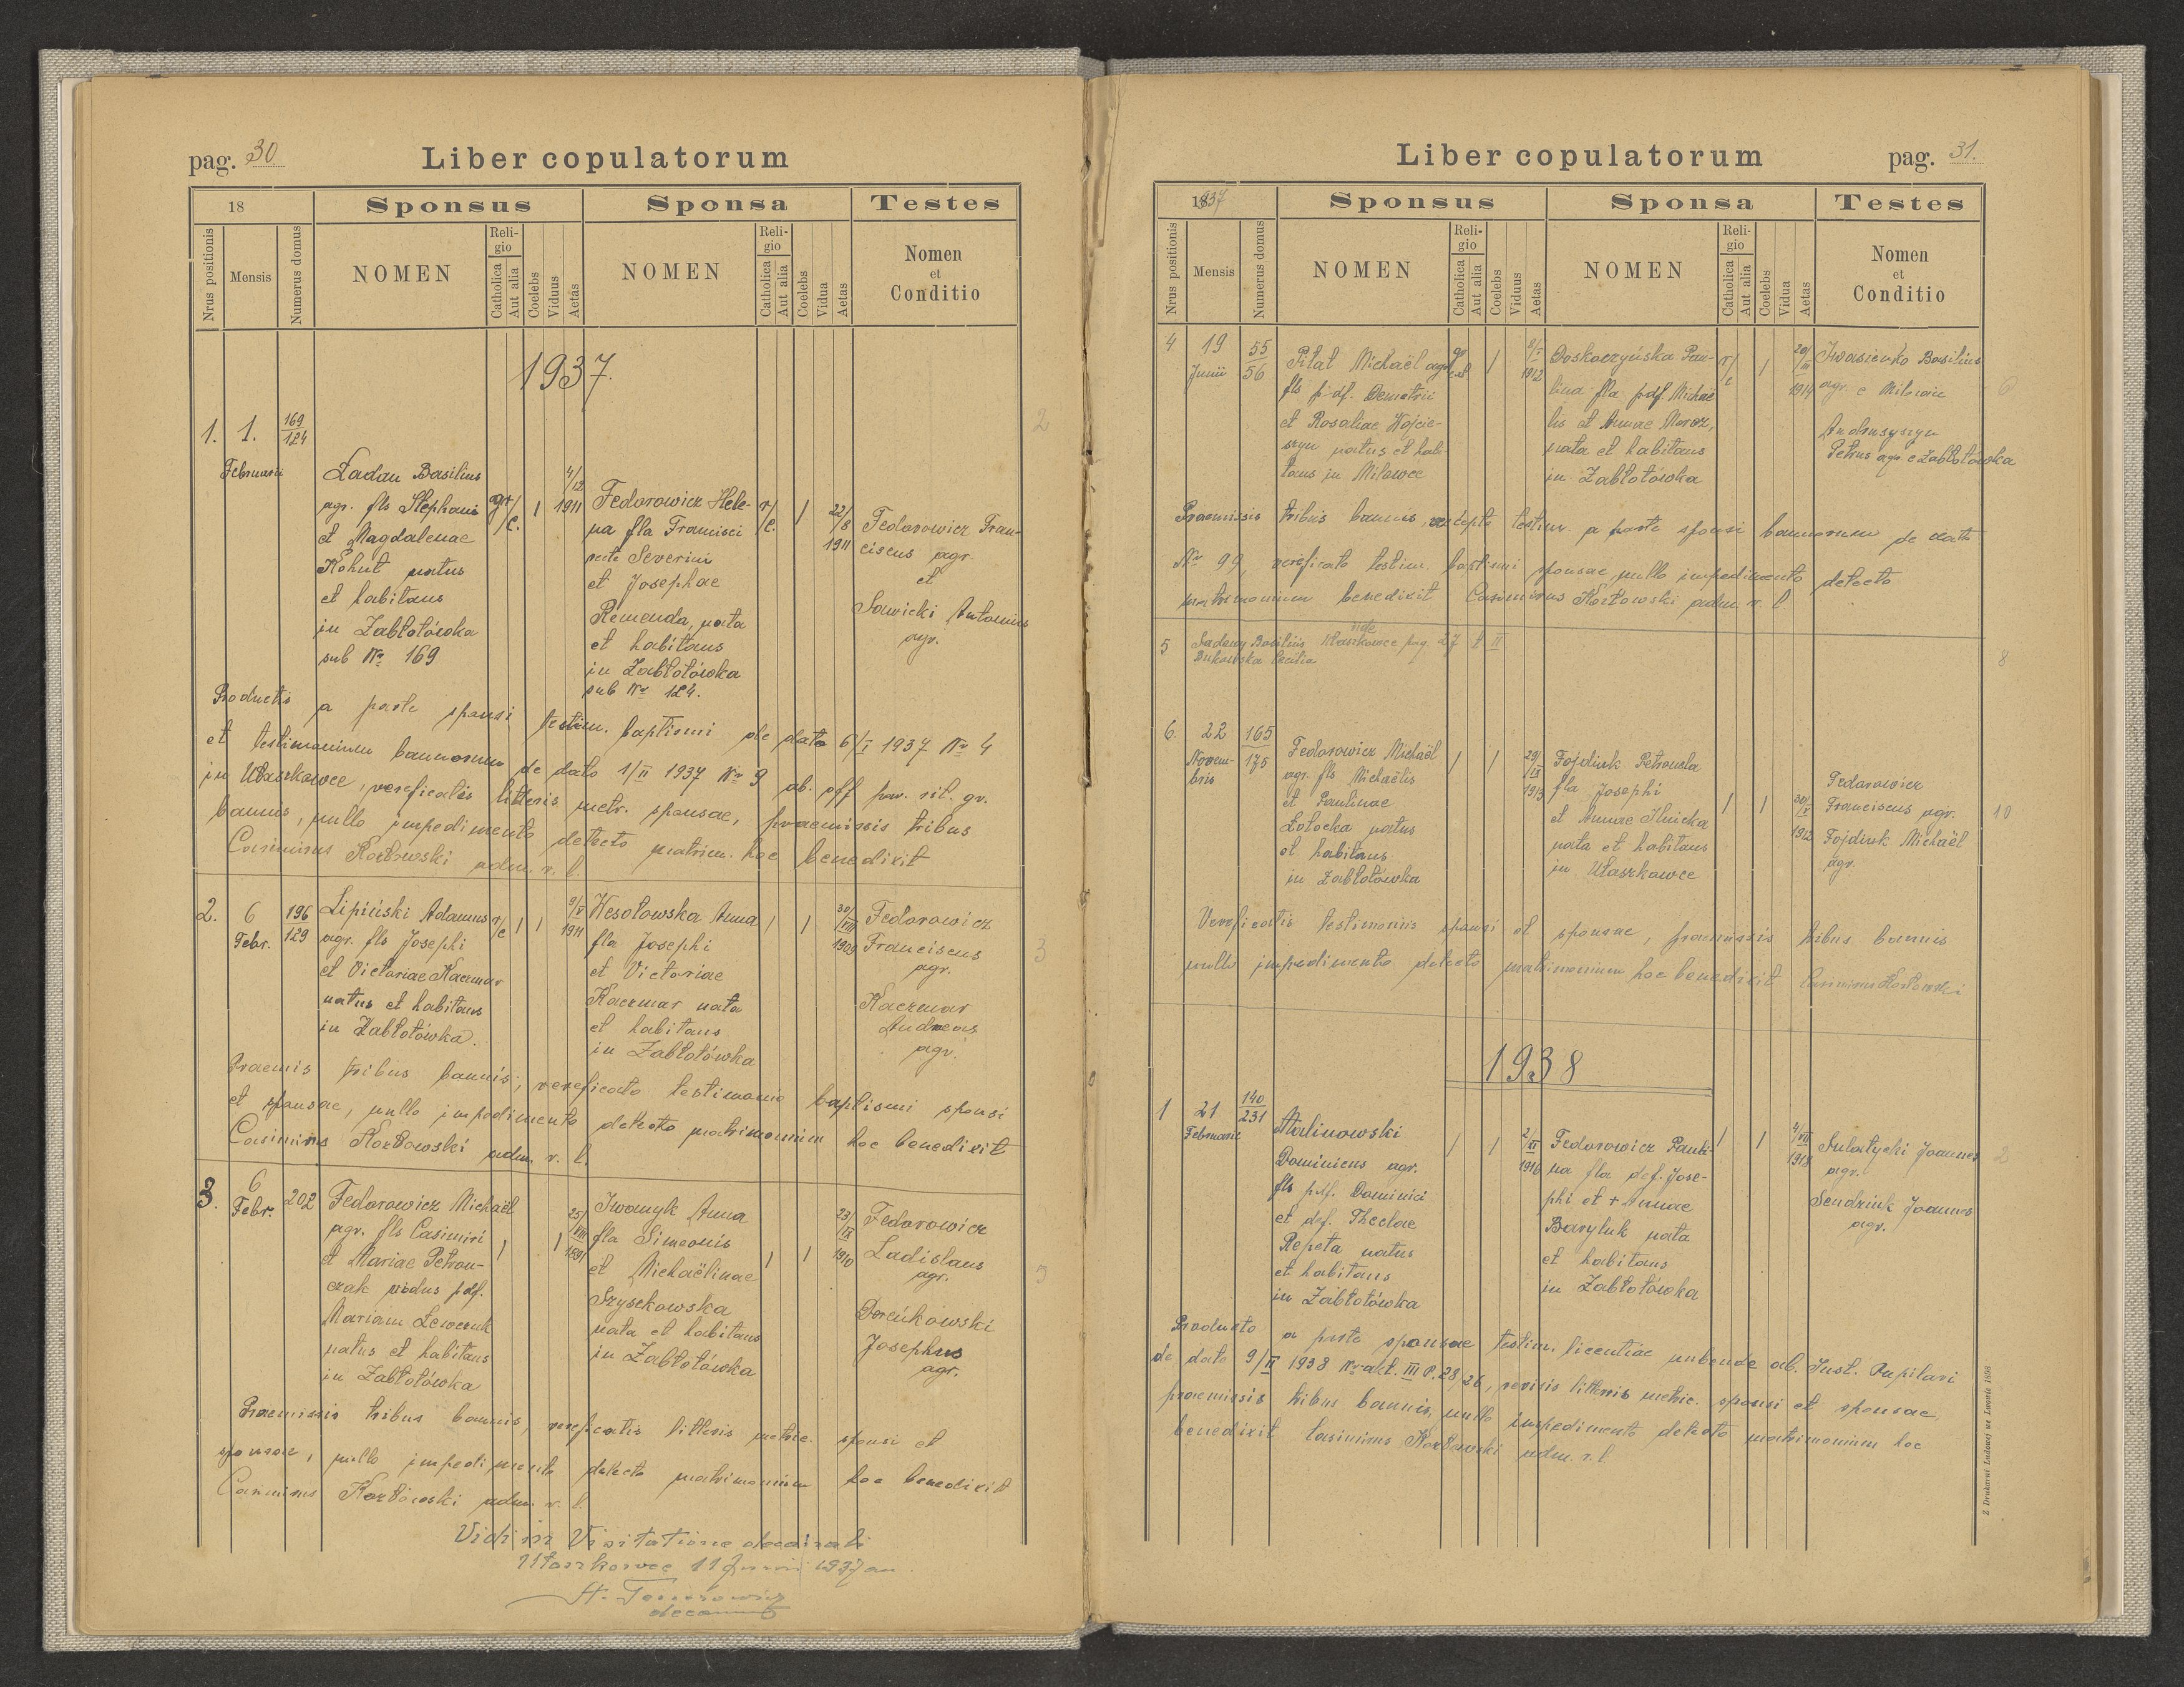 pag. 30
Liber copulatorum
18
Sponsus
Sponsa
Testes
Nrus positionis
Mensis
Numerus domus
NOMEN
Religio
Catholica
Aut alia
Coelebs
Viduus
Aetas
NOMEN
Religio
Catholica
Aut alia
Coelebs
Vidua
Aetas
Nomen
et
Conditio
1937.
1. 1. 169/124
Februarii
Ładan Basilius
agr. fls Stephani
et Magdalenae
Kohut natus
et habitans
in Zabłotówka
sub Nr 169
gr/c. 1 4/12 1911
Fedorowicz Hele-
na fla Francisci
recte Severini
et Josephae
Remenda, nata
et habitans
in Zabłotówka
sub Nr 124.
r/c. 1 22/8 1911
Fedorowicz Fran-
ciscus agr.
et
Sawicki Antonius
agr.
2
Productis a parte sponsi testim. baptismi de dato 6/I 1937 Nr 4
et testimonium bannorum de dato 1/II 1937 Nr 9 ab. off par. rit. gr.
in Ułaszkowce, verificatis litteris metr. sponsae, praemissis tribus
bannis, nullo impedimento detecto matrim. hoc benedixit
Casimirus Kozłowski adm. r. l.
2. 6 196/129
Febr.
Lipiński Adamus
agr. fls Josephi
et Victoriae Kaczmar
natus et habitans
in Zabłotówka.
r/c 1 1 9/V 1911
Wesołowska Anna
fla Josephi
et Victoriae
Kaczmar nata
et habitans
in Zabłotówka
1 1 30/VIII 1909
Fedorowicz
Franciscus
agr.
Kaczmar
Andreas
agr.
3
Praemis tribus bannis, verificato testimonio baptismi sponsi
et sponsae, nullo impedimento detecto matrimonium hoc benedixit
Casimirus Kozłowski adm. r. l.
3. 6 202
Febr.
Fedorowicz Michaël
agr. fls Casimiri
et Mariae Petron-
czak viodus pdf.
Mariam Lewczuk
natus et habitans
in Zabłotówka
1 1 25/VIII 1891
Iwanyk Anna
fla Simeonis
et Michaëlinae
Szysckowska
nata et habitans
in Zabłotówka
1 1 23/IX 1910
Fedorowicz
Ladislaus
agr.
Josephus
agr.
Praemissis tribus bannis, verificatis litteris metric. sponsi et
sponsae, nullo impedimento detecto matrimonium hoc benedixit
Casimirus Kozłowski adm. r. l.
Vidi in Visitatione decanali
Ułaszkowce 11 Junii 1937 an.
decanus
Liber copulatorum
pag. 31.
1937
Sponsus
Sponsa
Testes
Nrus positionis
Mensis
Numerus domus
NOMEN
Religio
Catholica
Aut alia
Coelebs
Viduus
Aetas
NOMEN
Religio
Catholica
Aut alia
Coelebs
Vidua
Aetas
Nomen
et
Conditio
4 19 55/56
Junii
Pilat Michaël agr.
fls pdf. Demetrii
et Rosaliae Wojcie-
szyn natus et habi-
tans in Milowce
1 1912
Doskoczyńska Pau-
lina fla pdf Michaë
lis et Annae Moroz,
nata et habitans
in Zabłotówka
r/c 1 20/III 1914
Iwasienko Basilius
agr. e Milowce
Andruszyszyn
Petrus agr. e Zabłotówka
6
Praemissis tribus bannis, accepto testim. a parte sponsi bannorum de dato
Nr 99, verificato testim. baptismi sponsae, nullo impedimento detecto
matrimonium benedixit Casimirus Kozłowski adm. r. l.
5 Sadowy Basilius vide Ułaszkowce pag. 27 t II
Bukowska Cecilia
8
6. 22 165/175
Novem-
bris
Fedorowicz Michaël
agr. fls Michaëlis
et Paulinae
Zołocka natus
et habitans
in Zabłotówka
1 1 29/IX 1913
Fojdiuk Petronela
fla Josephi
et Annae Ilnicka
nata et habitans
in Ułaszkowce
1 1 30/I 1912
Fedorowicz
Franciscus agr.
Fojdiuk Michaël
agr.
10
Verificatis testimoniis sponsi et sponsae, praemissis tribus bannis
nullo impedimento detecto matrimonium hoc benedixit Casimirus Kozłowski
1938
1 21 140/231
Februarii
Malinowski
Dominicus agr.
fls pdf. Dominici
et def. Theclae
Repeta natus
et habitans
in Zabłotówka
1 1 2/XI 1916
Fedorowicz Pauli-
na fla def. Jose-
phi et + Annae
Baryluk nata
et habitans
in Zabłotówka
1 1 4/VII 1918
Sulatycki Joannes
agr.
Sendziuk Joannes
agr.
2
Producto a parte sponsae testim. licentiae nubende ab. Inst. Pupilari
de dato 9/II 1938 Nr akt. III P. 28/26, revisis litteris metric. sponsi et sponsae,
praemissis tribus bannis, nullo impedimento detecto matrimonium hoc
benedixit Casimirus Kozłowski adm. r. l.
Z Drukarni Ludowej we Lwowie 1898